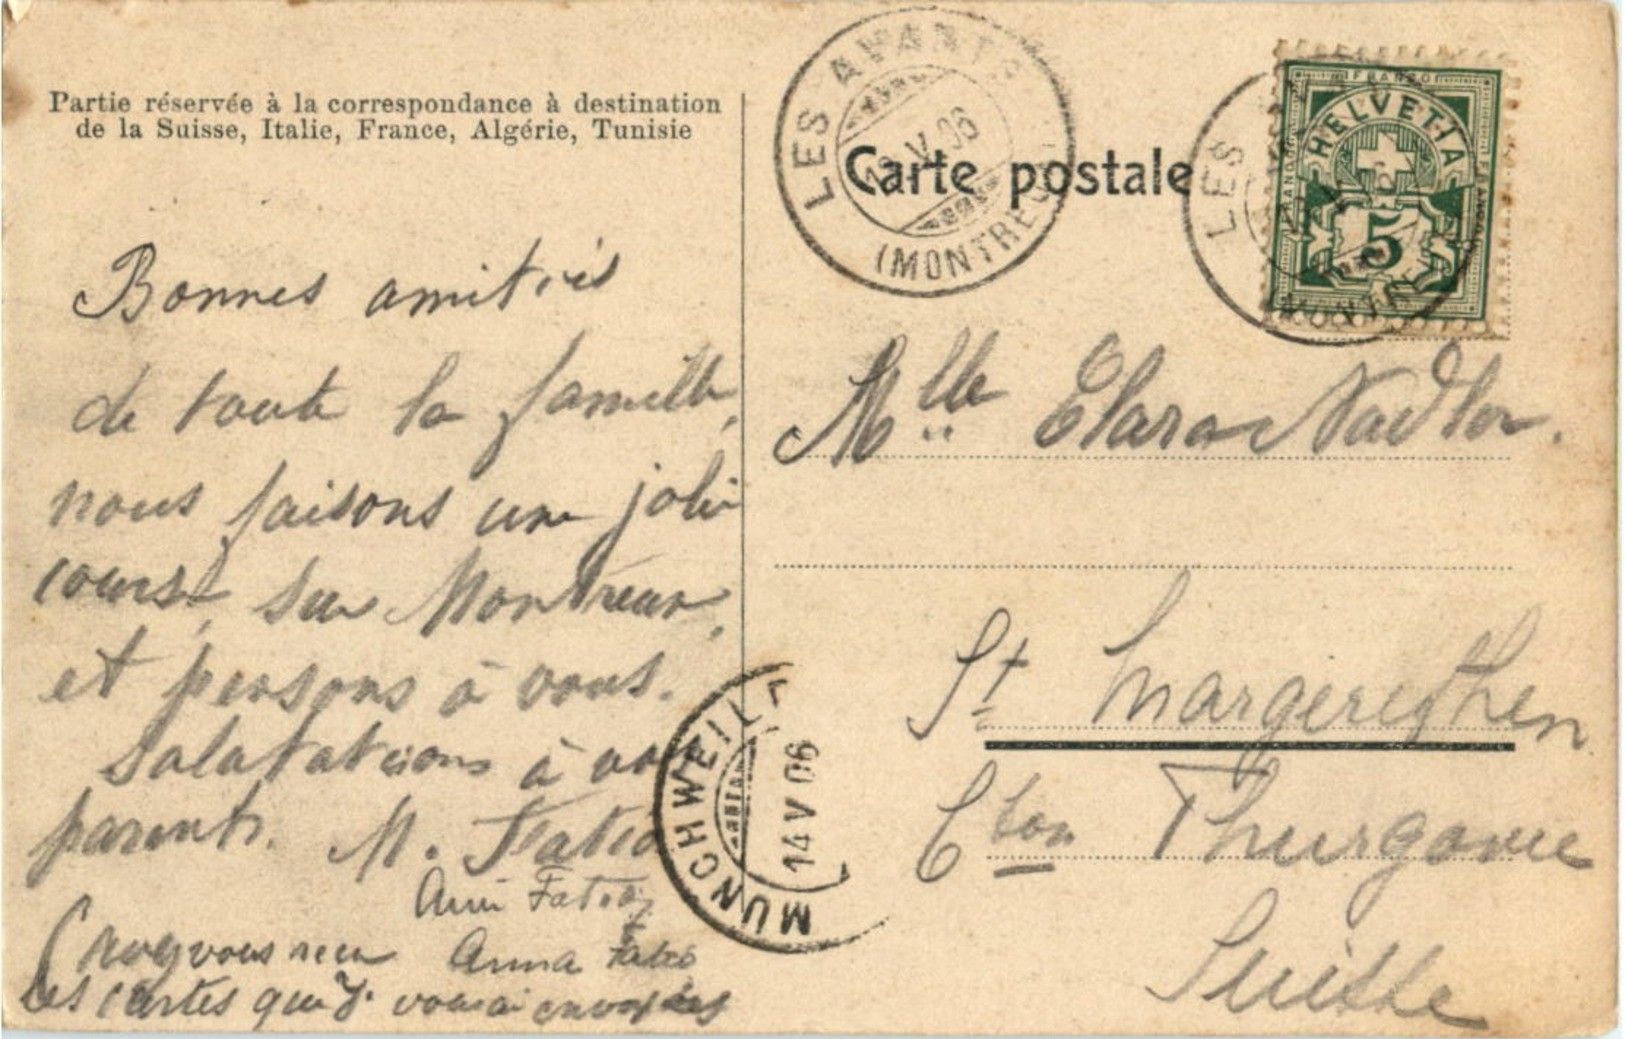 Partie réservée à la correspondance à destination
de la Suisse, Italie, France, Algérie, Tunisie
Carte postale
LES AVANTS
V.06
(MONTREUX)
FRANCO
HELVETIA
5
LES
MONTREUX
Bonnes amitiés
de toute la famille,
nous faisons une jolie
course sur Montreux,
et pensons à vous.
Salutations à vos
parents. M. Fatio
Anna Fatio
avez vous reçu
les cartes que j. vous ai envoyées
Mlle Clara Nadler.
St Margerethen
Cton Thurgovie
Suisse
MÜNCHWEILE
14 V 06